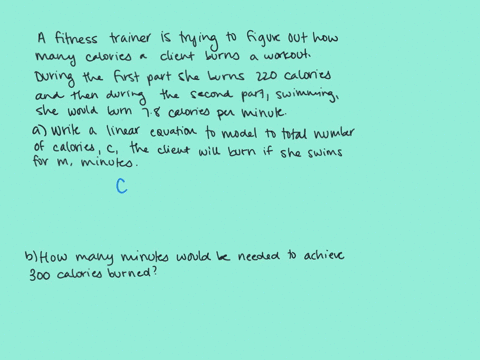 A fitness trainer is trying to figure out how
many calories a client burns a workout.
During the first part she burns 220 calories
and then during the second part, swimming,
she would burn 7.8 calories per minute.
a) Write a linear equation to model to total number
of calories, c, the client will burn if she swims
for m, minutes.
C
b) How many minutes would be needed to achieve
300 calories burned?